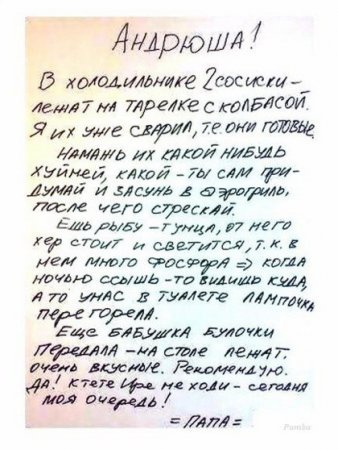 Андрюша!
В холодильнике 2 сосиски –
лежат на тарелке с колбасой.
Я их уже сварил, т.е. они готовые.
Намажь их какой нибудь
хуйней, какой – ты сам при-
думай и засунь в аэрогриль,
после чего стрескай.
Ешь рыбу – тунца, от него
хер стоит и светится, т.к. в
нем много фосфора => когда
ночью ссышь – то видишь куда,
а то у нас в туалете лампочка
перегорела.
Еще бабушка булочки
передала – на столе лежат.
очень вкусные. Рекомендую.
Да! К тете Ире не ходи – сегодня
моя очередь!
= Папа =
Pamba